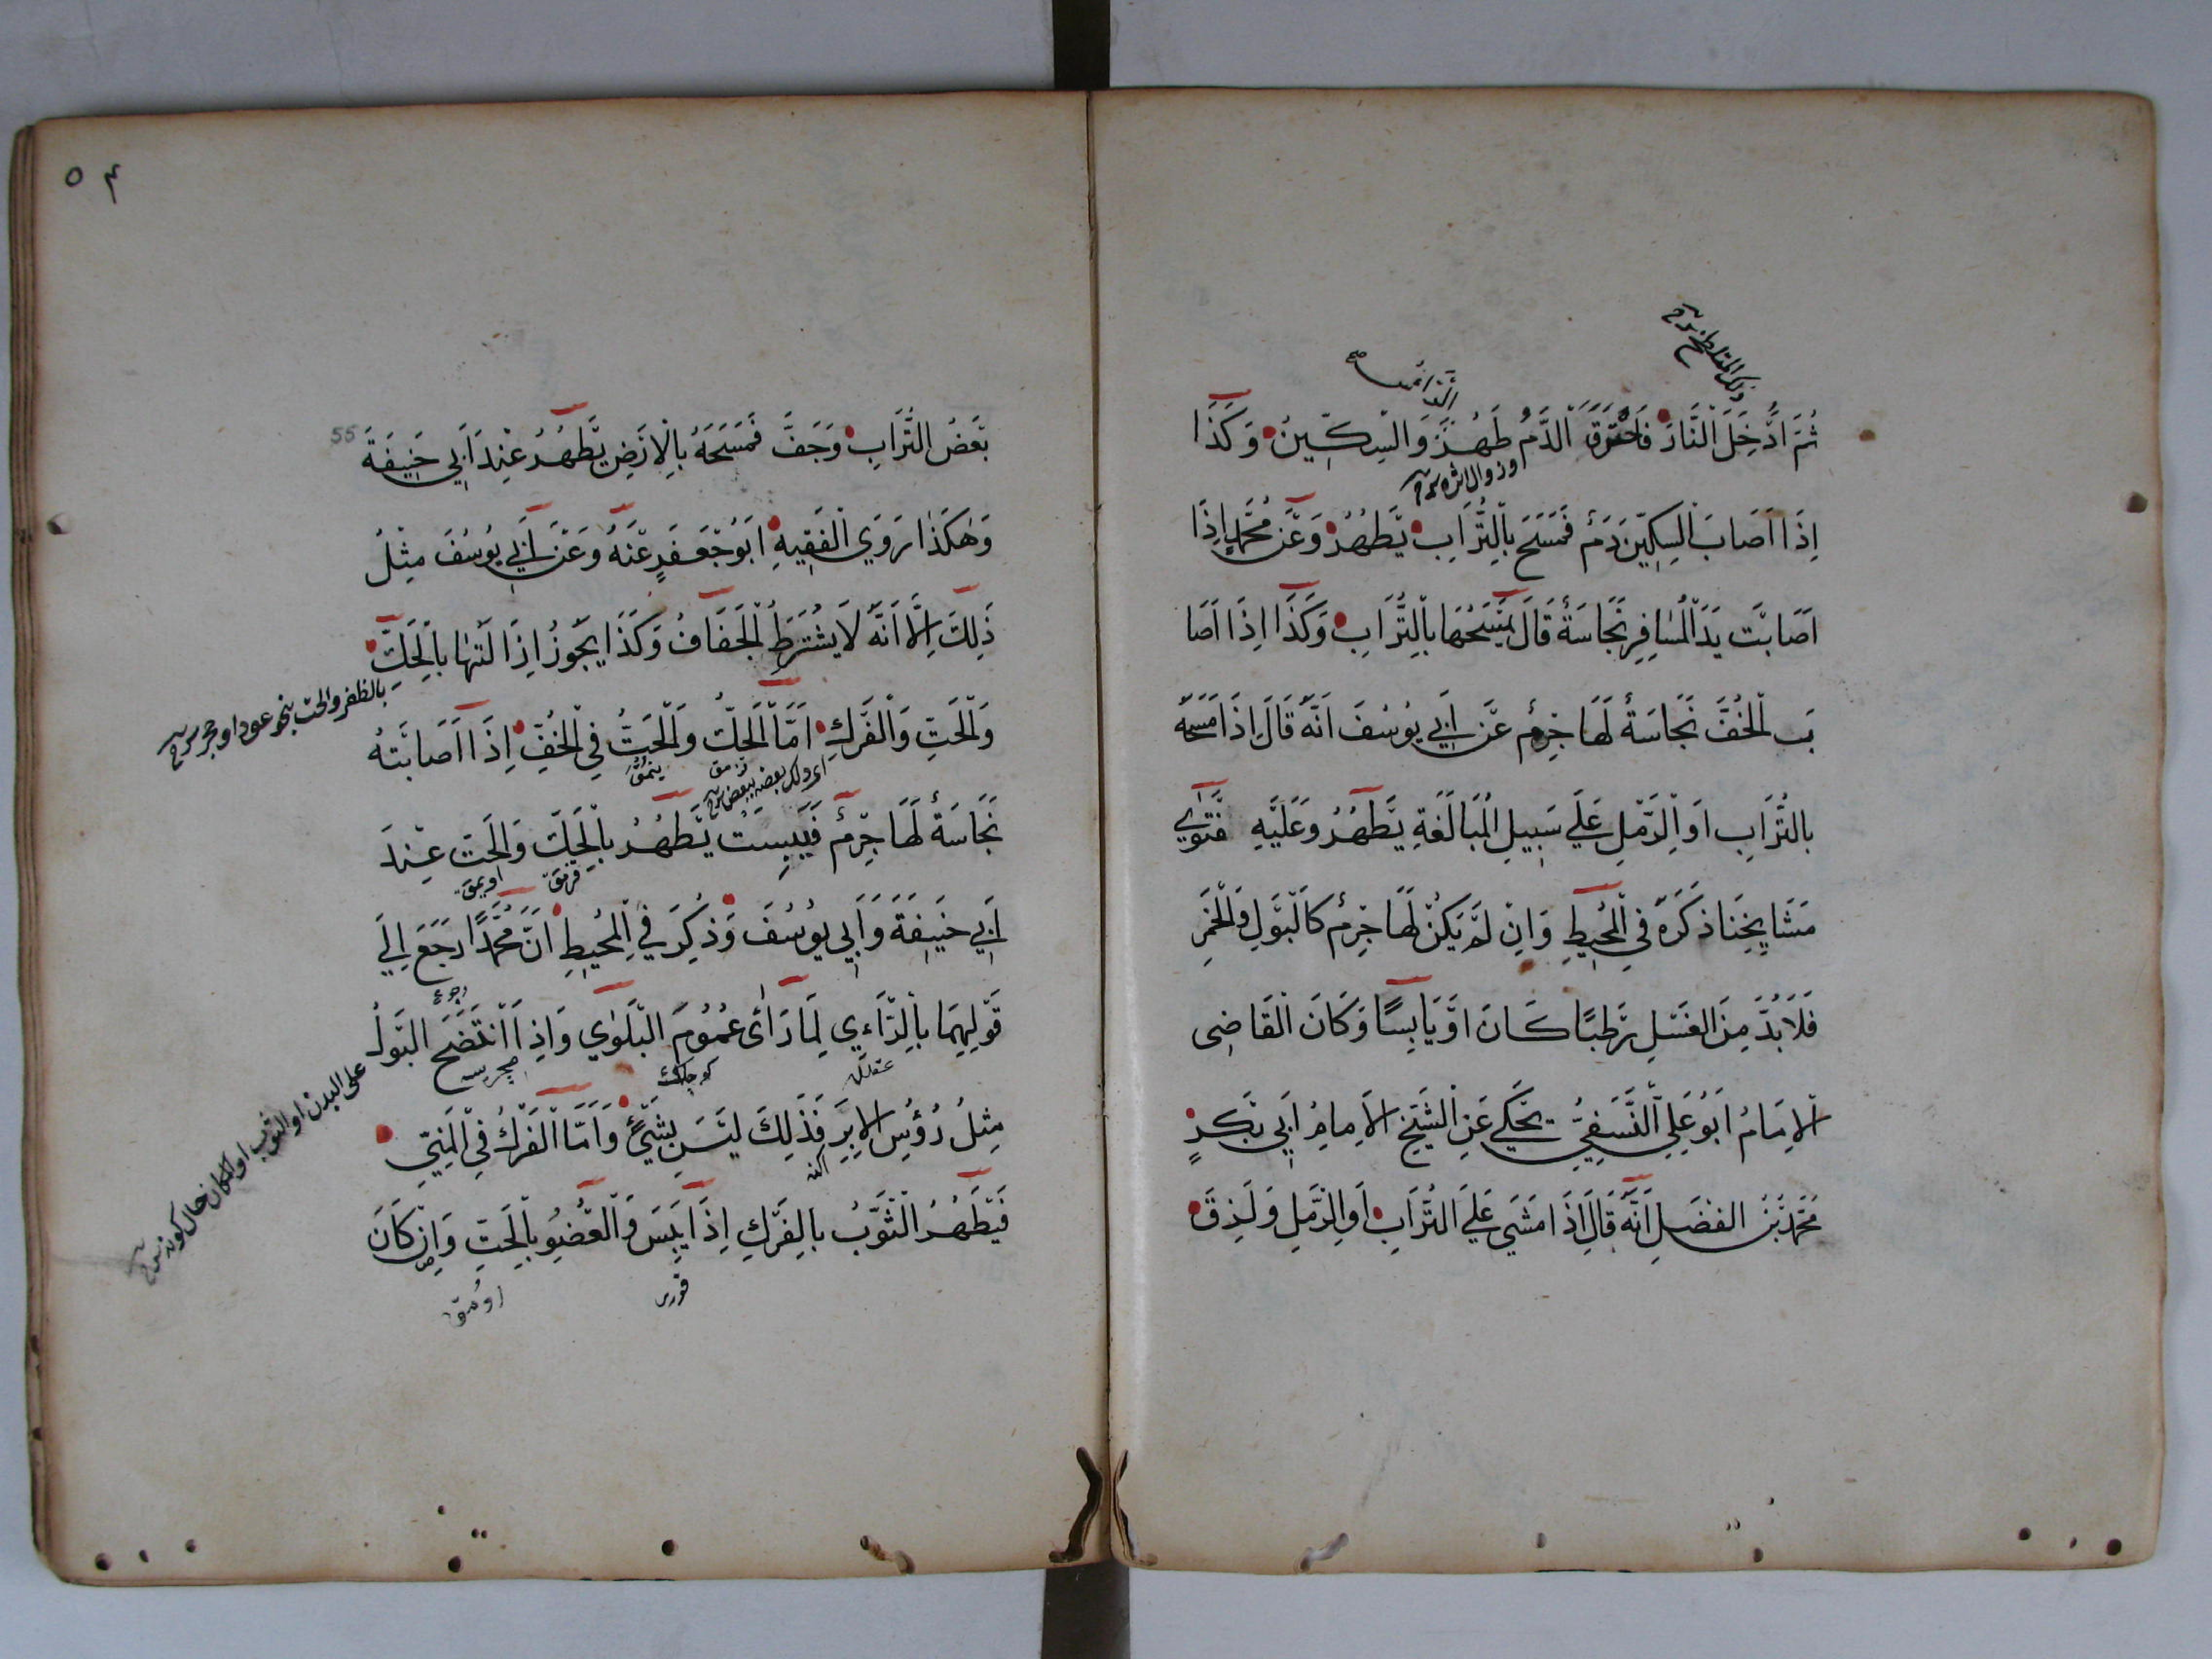 ثُمَّ اُدْخِلَ النَّارَ فَاحْتَرَقَ الدَّمُ طَهُرَ وَالسِّكِّينُ وَكَذَا
وزوال اثره شرح
اِذَا اَصَابَ السِّكِّينَ دَمٌ فَمَسَحَ بِالتُّرَابِ يَطْهُرُ وَعَنْ مُحَمَّدٍ اِذَا
اَصَابَتْ يَدَ الْمُسَافِرِ نَجَاسَةٌ قَالَ يَمْسَحُهَا بِالتُّرَابِ وَكَذَا اِذَا اَصَا
بَ الْخُفَّ نَجَاسَةٌ لَهَا جِرْمٌ عَنْ اَبِي يُوسُفَ اَنَّهُ قَالَ اِذَا مَسَحَهُ
بِالتُّرَابِ اَوِ الرَّمْلِ عَلَي سَبِيلِ الْمُبَالَغَةِ يَطْهُرُ وَعَلَيْهِ فَتْوَاي
مَشَايِخِنَا ذَكَرَهُ فِي الْمُحِيطِ وَاِنْ لَمْ يَكُنْ لَهَا جِرْمٌ كَالْبَوْلِ وَالْخَمْرِ
فَلَا بُدَّ مِنَ الغَسْلِ رَطْبًا كَانَ اَوْ يَابِسًا وَكَانَ الْقَاضِى
الْاِمَامُ اَبُو عَلِي النَّسَفِيُّ يَحْكِي عَنِ الشَّيْخِ الْاِمَامِ اَبِي بَكْرٍ
مُحَمَّدِ بْنِ الفَضْلِ اَنَّهُ قَالَ اِذَا مَشَي عَلَي التُّرَابِ اَوِ الرَّمْلِ وَلَزِقَ
٥٤
55
بَعْضُ التُّرَابِ وَجَفَّ فَمَسَحَهُ بِالْاَرْضِ يَطْهُرُ عِنْدَ اَبِي حَنِيفَةَ
وَهَكَذَا رَوَي الْفَقِيهِ اَبُو جَعْفَرٍ عَنْهُ وَعَنْ اَبِي يُوسُفَ مِثْلُ
ذَلِكَ اِلَّا اَنَّهُ لَا يَشْتَرِطُ الْجَفَافُ وَكَذَا يَجُوزُ اِزَالَتُهَا بِالْحَكِّ
بالظفر والحت بنحو عود او حجر شرح
وَالْحَتِّ وَالْفَرْكِ اَمَّا الْحَكُّ وَالْحَتُّ فِي الْخُفِّ اِذَا اَصَابَتْهُ
اى ودلك بعضه ببعض شرح
نَجَاسَةٌ لَهَا جِرْمٌ فَيَبِسَتْ يَطْهُرُ بِالْحَكِّ وَالْحَتِّ عِنْدَ
اَبِي حَنِيفَةَ وَاَبِي يُوسُفَ وَذُكِرَ فِي الْمُحِيطِ اَنَّ مُحَمَّدًا رَجَعَ اِلَي
قَوْلِهِمَا بِالرَّاءِي لِمَا رَاَى عُمُومَ الْبَلْوَاي وَاِذَا انْتَضَحَ الْبَوْلُ
على البدن او الثوب او المكان حال كونه شرح
مِثْلُ رُؤُسِ الْاِبَرِ فَذَلِكَ لَيْسَ بِشَيْءٍ وَاَمَّا الْفَرْكُ فِي الْمَنِيِّ
فَيَطْهُرُ الثَّوْبُ بِالْفَرْكِ اِذَا يَبِسَ وَالْعُضْوُ بِالْحَتِّ وَاِنْ كَانَ